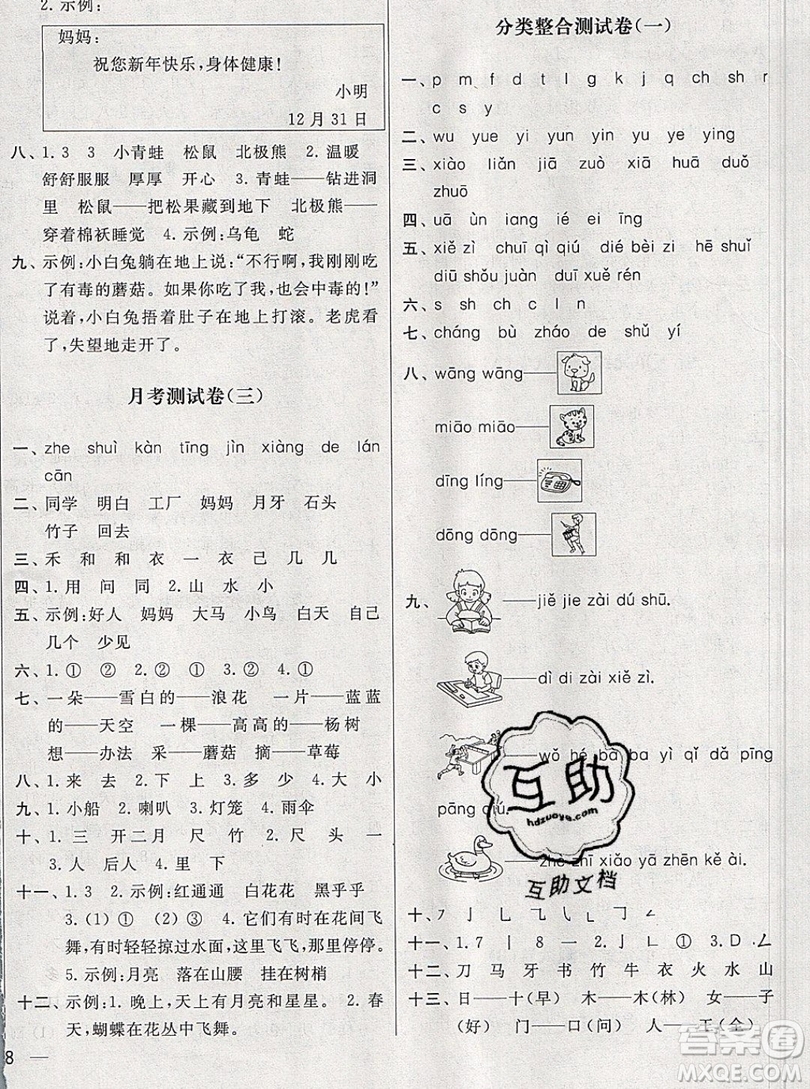 2. 示例:
妈妈:
祝您新年快乐,身体健康!
小明
12月31日
八、1. 3 3 小青蛙 松鼠 北极熊 2. 温暖
舒舒服服 厚厚 开心 3. 青蛙——钻进洞
里 松鼠——把松果藏到地下 北极熊——
穿着棉袄睡觉 4. 示例:乌龟 蛇
九、示例:小白兔躺在地上说:“不行啊,我刚刚吃
了有毒的蘑菇。如果你吃了我,也会中毒的!”
说着,小白兔捂着肚子在地上打滚。老虎看
了,失望地走开了。
月考测试卷(三)
一、zhe shuì kàn tīng jìn xiàng de lán
cān
二、同学 明白 工厂 妈妈 月牙 石头
竹子 回去
三、禾 和 和 衣 一 衣 己 几 几
四、1. 用 问 同 2. 山 水 小
五、示例:好人 妈妈 大马 小鸟 白天 自己
几个 少见
六、1. ① ② 2. ② ① 3. ② ① 4. ① ②
七、一朵——雪白的——浪花 一片——蓝蓝
的——天空 一棵——高高的——杨树
想——办法 采——蘑菇 摘——草莓
八、1. 来 去 2. 下 上 3. 多 少 4. 大 小
九、1. 小船 2. 喇叭 3. 灯笼 4. 雨伞
十、1. 三 开 二 月 尺 竹 2. 尺 头 一
3. 人 后人 4. 里 下
十一、1. 3 2. 示例:红通通 白花花 黑乎乎
3. (1) ① (2) ③ 4. 它们有时在花间飞
舞,有时轻轻掠过水面,这里停停,那里停停。
5. 示例:月亮 落在山腰 挂在树梢
十二、示例:1. 晚上,天上有月亮和星星。 2. 春
天,蝴蝶在花丛中飞舞。
8 —
分类整合测试卷(一)
一、p m f d t l g k j q ch sh r
c s y
二、wu yue yi yun yin yu ye ying
三、xiào liǎn jiā zuò xiā huā duǒ
zhuō
四、uā ùn iang ié ei īng
五、xiě zì chuī qì qiú dié bèi zi hē shuǐ
diū shǒu juàn duī xuě rén
六、s sh ch c l n
七、cháng bù zháo de shǔ yí
八、wāng wāng——
miāo miāo——
dīng líng——
dōng dōng——
九、——jiě jie zài dú shū.
——dì di zài xiě zì.
——wǒ hé bà ba yì qǐ dǎ pīng
pāng qiú.
——zhè zhī xiǎo yā zhēn kě ài.
互助
hdzuoye.com
互助文档
十、㇆ 亅 乚 ㇈ ㇄ ㇆ ㇄ ㇀
十一、1. 7 丨 | 8 一 2. 亅 ㇄ ① 3. D ㇜
十二、刀 马 牙 书 竹 牛 衣 火 水 山
十三、日——十(早) 木——木(林) 女——子
(好) 门——口(问) 人——工(全)
答案圈
MXQE.COM